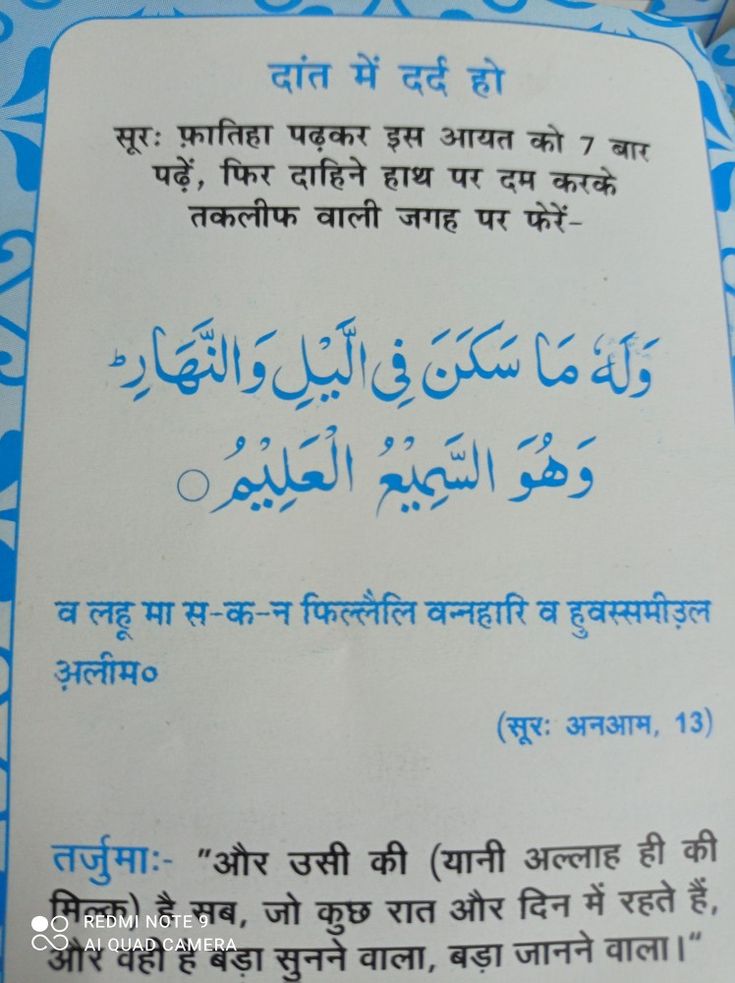 दांत में दर्द हो
सूरः फ़ातिहा पढ़कर इस आयत को 7 बार
पढ़ें, फिर दाहिने हाथ पर दम करके
तकलीफ वाली जगह पर फेरें-
وَلَهٗ مَا سَكَنَ فِى الَّيْلِ وَالنَّهَارِ ؕ
وَهُوَ السَّمِيْعُ الْعَلِيْمُ ○
व लहू मा स-क-न फिल्लैलि वन्नहारि व हुवस्समीउ़ल
अ़लीम०
(सूरः अनआम, 13)
तर्जुमाः- "और उसी की (यानी अल्लाह ही की
मिल्क) है सब, जो कुछ रात और दिन में रहते हैं,
और वही है बड़ा सुनने वाला, बड़ा जानने वाला।"
REDMI NOTE 9
AI QUAD CAMERA